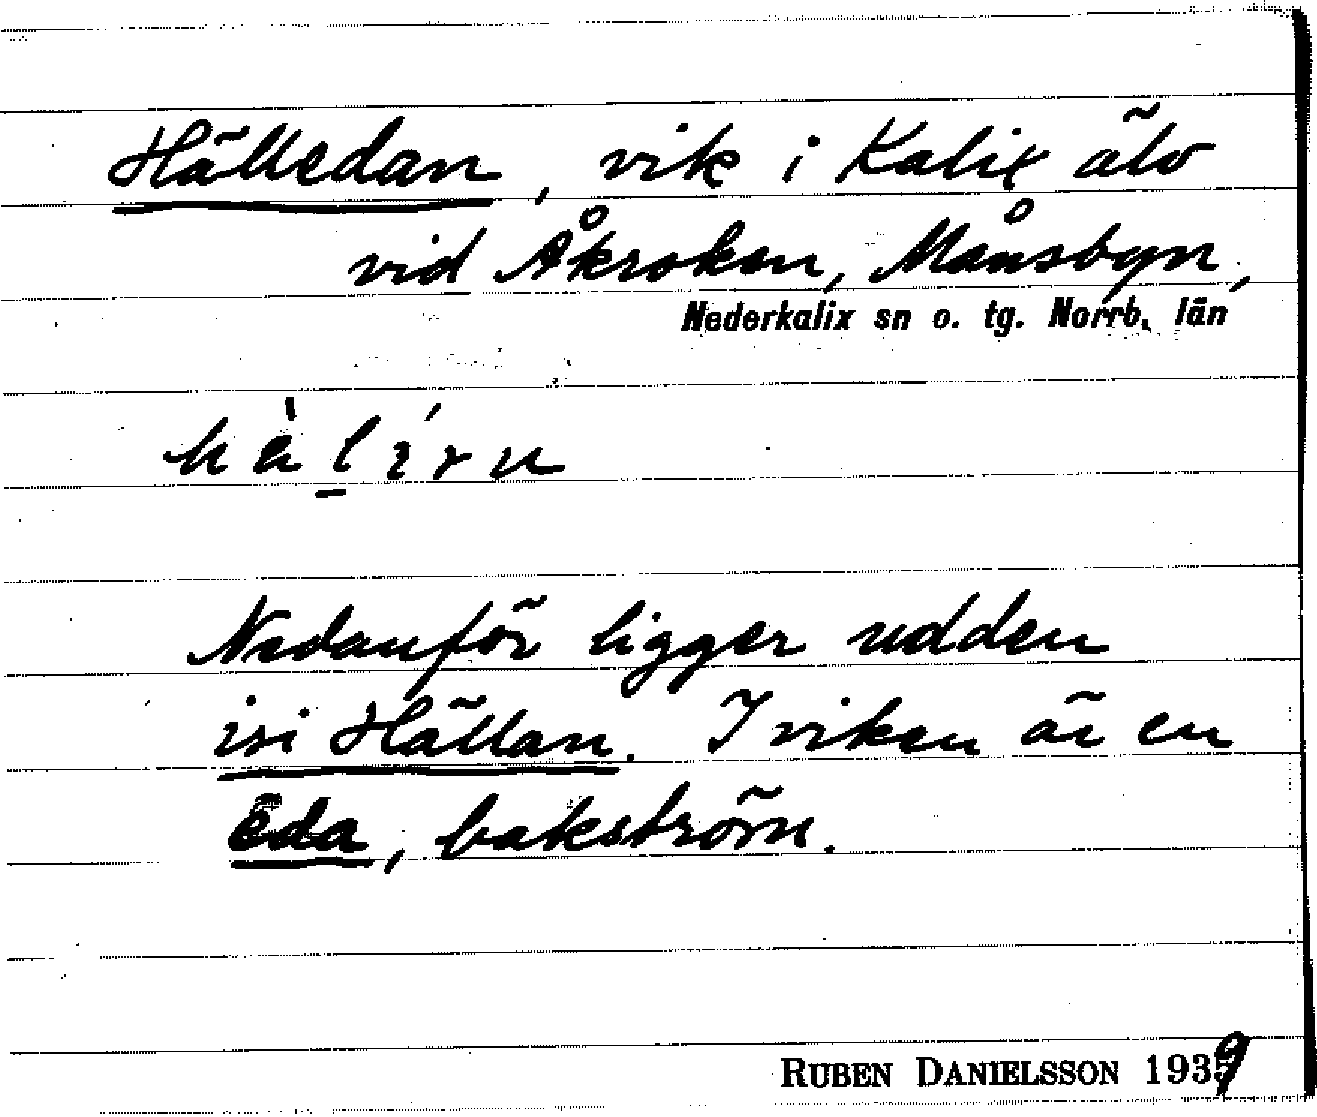 Hälledan, vik i Kalix älv
vid Åkroken, Månsbyn,
Nederkalix sn o. tg. Norrb. län
Nedanför ligger udden
isi Hällan. I viken är en
eda, bakström.
RUBEN DANIELSSON 1939